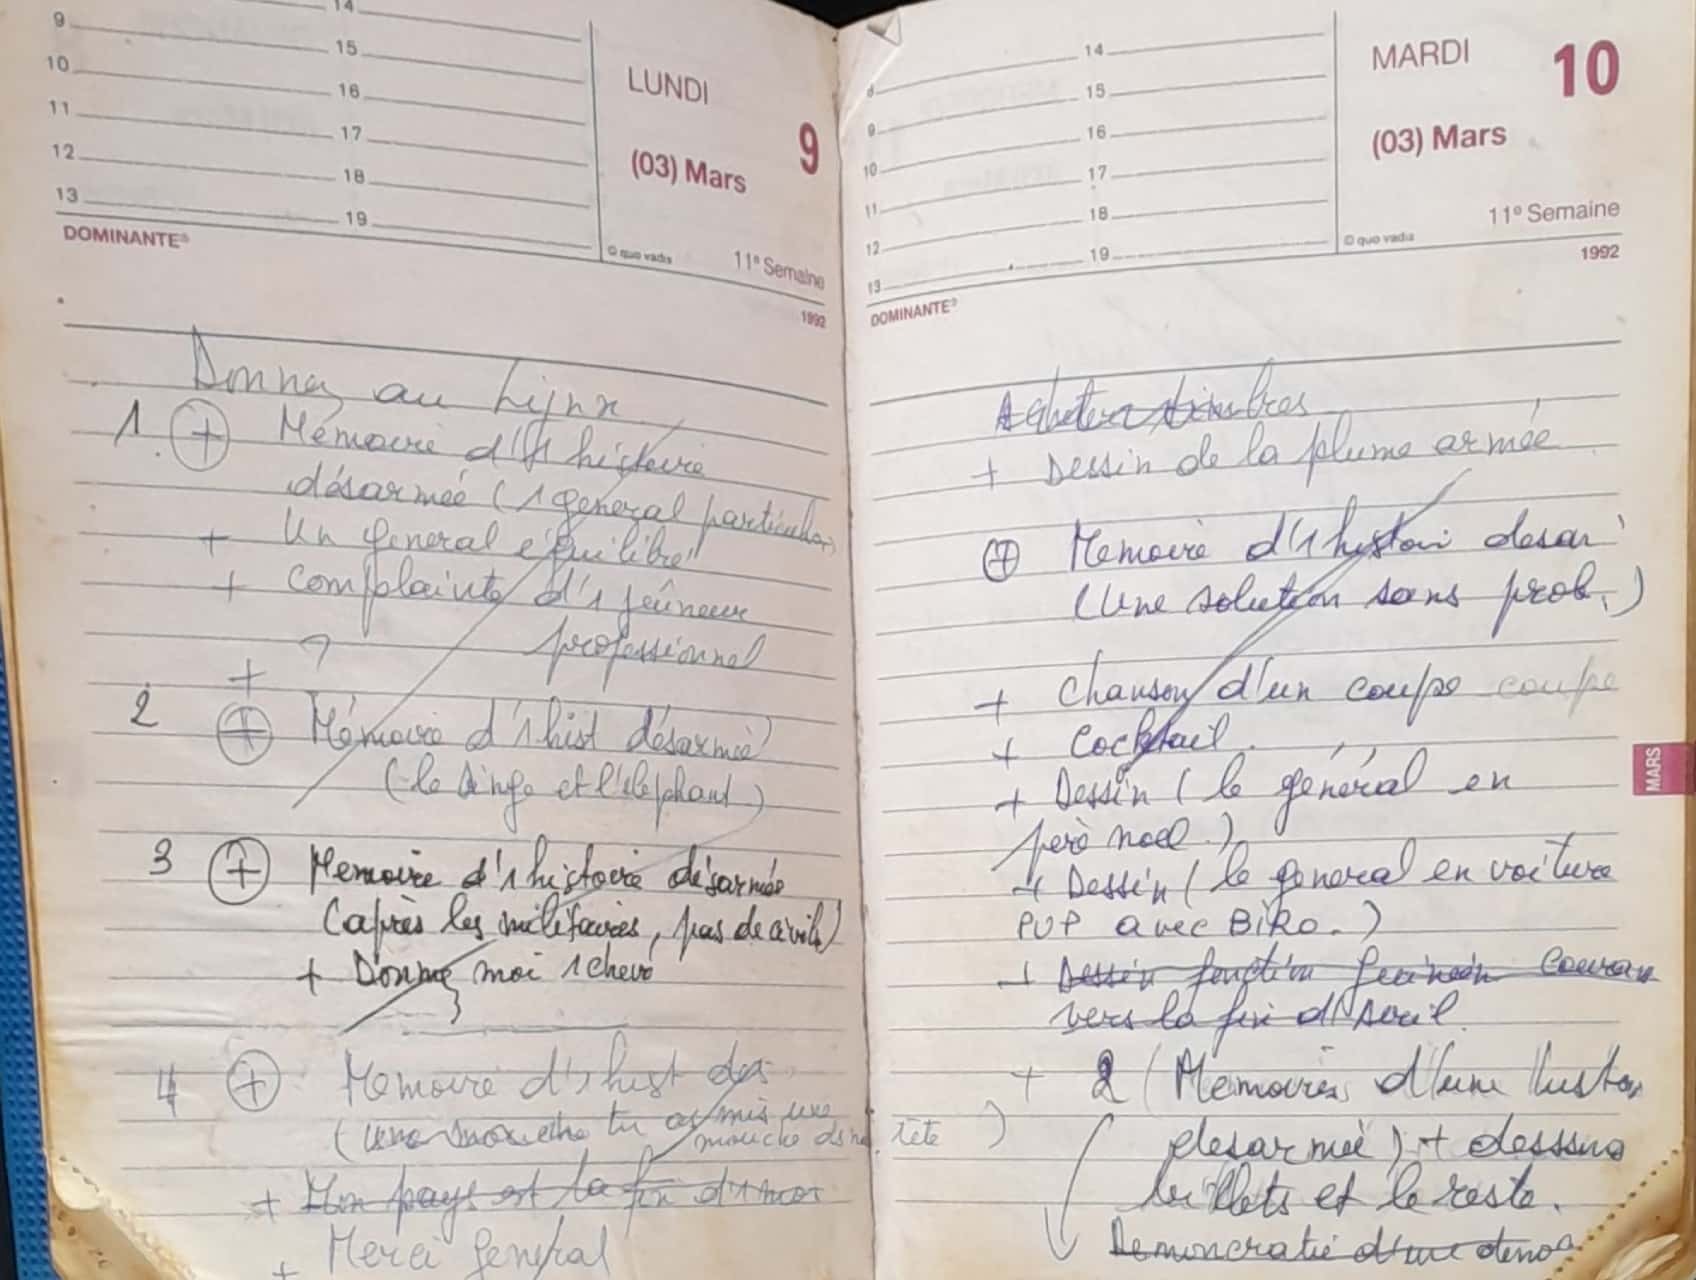 14
9
15
10
16
11
17
12
18
13
19
LUNDI
9
(03) Mars
DOMINANTE®
© quo vadis
11e Semaine
1992
Donnez au Lynx
1. + Mémoire d'1 histoire
désarmée (1 general particulier)
+ Un general équilibré
+ Complainte d'1 jeûneur
professionnel
+
2 + Mémoire d'1 hist désarmée
(le singe et l'elephant)
3 + Memoire d'1 histoire désarmée
(après les militaires, pas de civils)
+ Donne moi 1 cheve
4 + Memoire d'1 hist des
(une mouche tu as mis une
mouche ds ma tête)
+ Mon pays est la fin d'1 mot
+ Merci general
8
14
9
15
10
16
11
17
12
18
13
19
MARDI
10
(03) Mars
DOMINANTE®
© quo vadis
11e Semaine
1992
Acheter timbres
+ Dessin de la plume armée
+ Memoire d'1 histoi desar
(Une solution sans prob.)
+ Chanson d'un coupe coupe
+ Cocktail.
+ Dessin (le général en
père noel.)
+ Dessin (le general en voiture
PUP avec BIRO.)
+ Dessin fonction
vers la fin d'Avril.
+ 2 (Memoires d'une histo
desarmée) + dessins
billets et le reste.
d'une
MARS